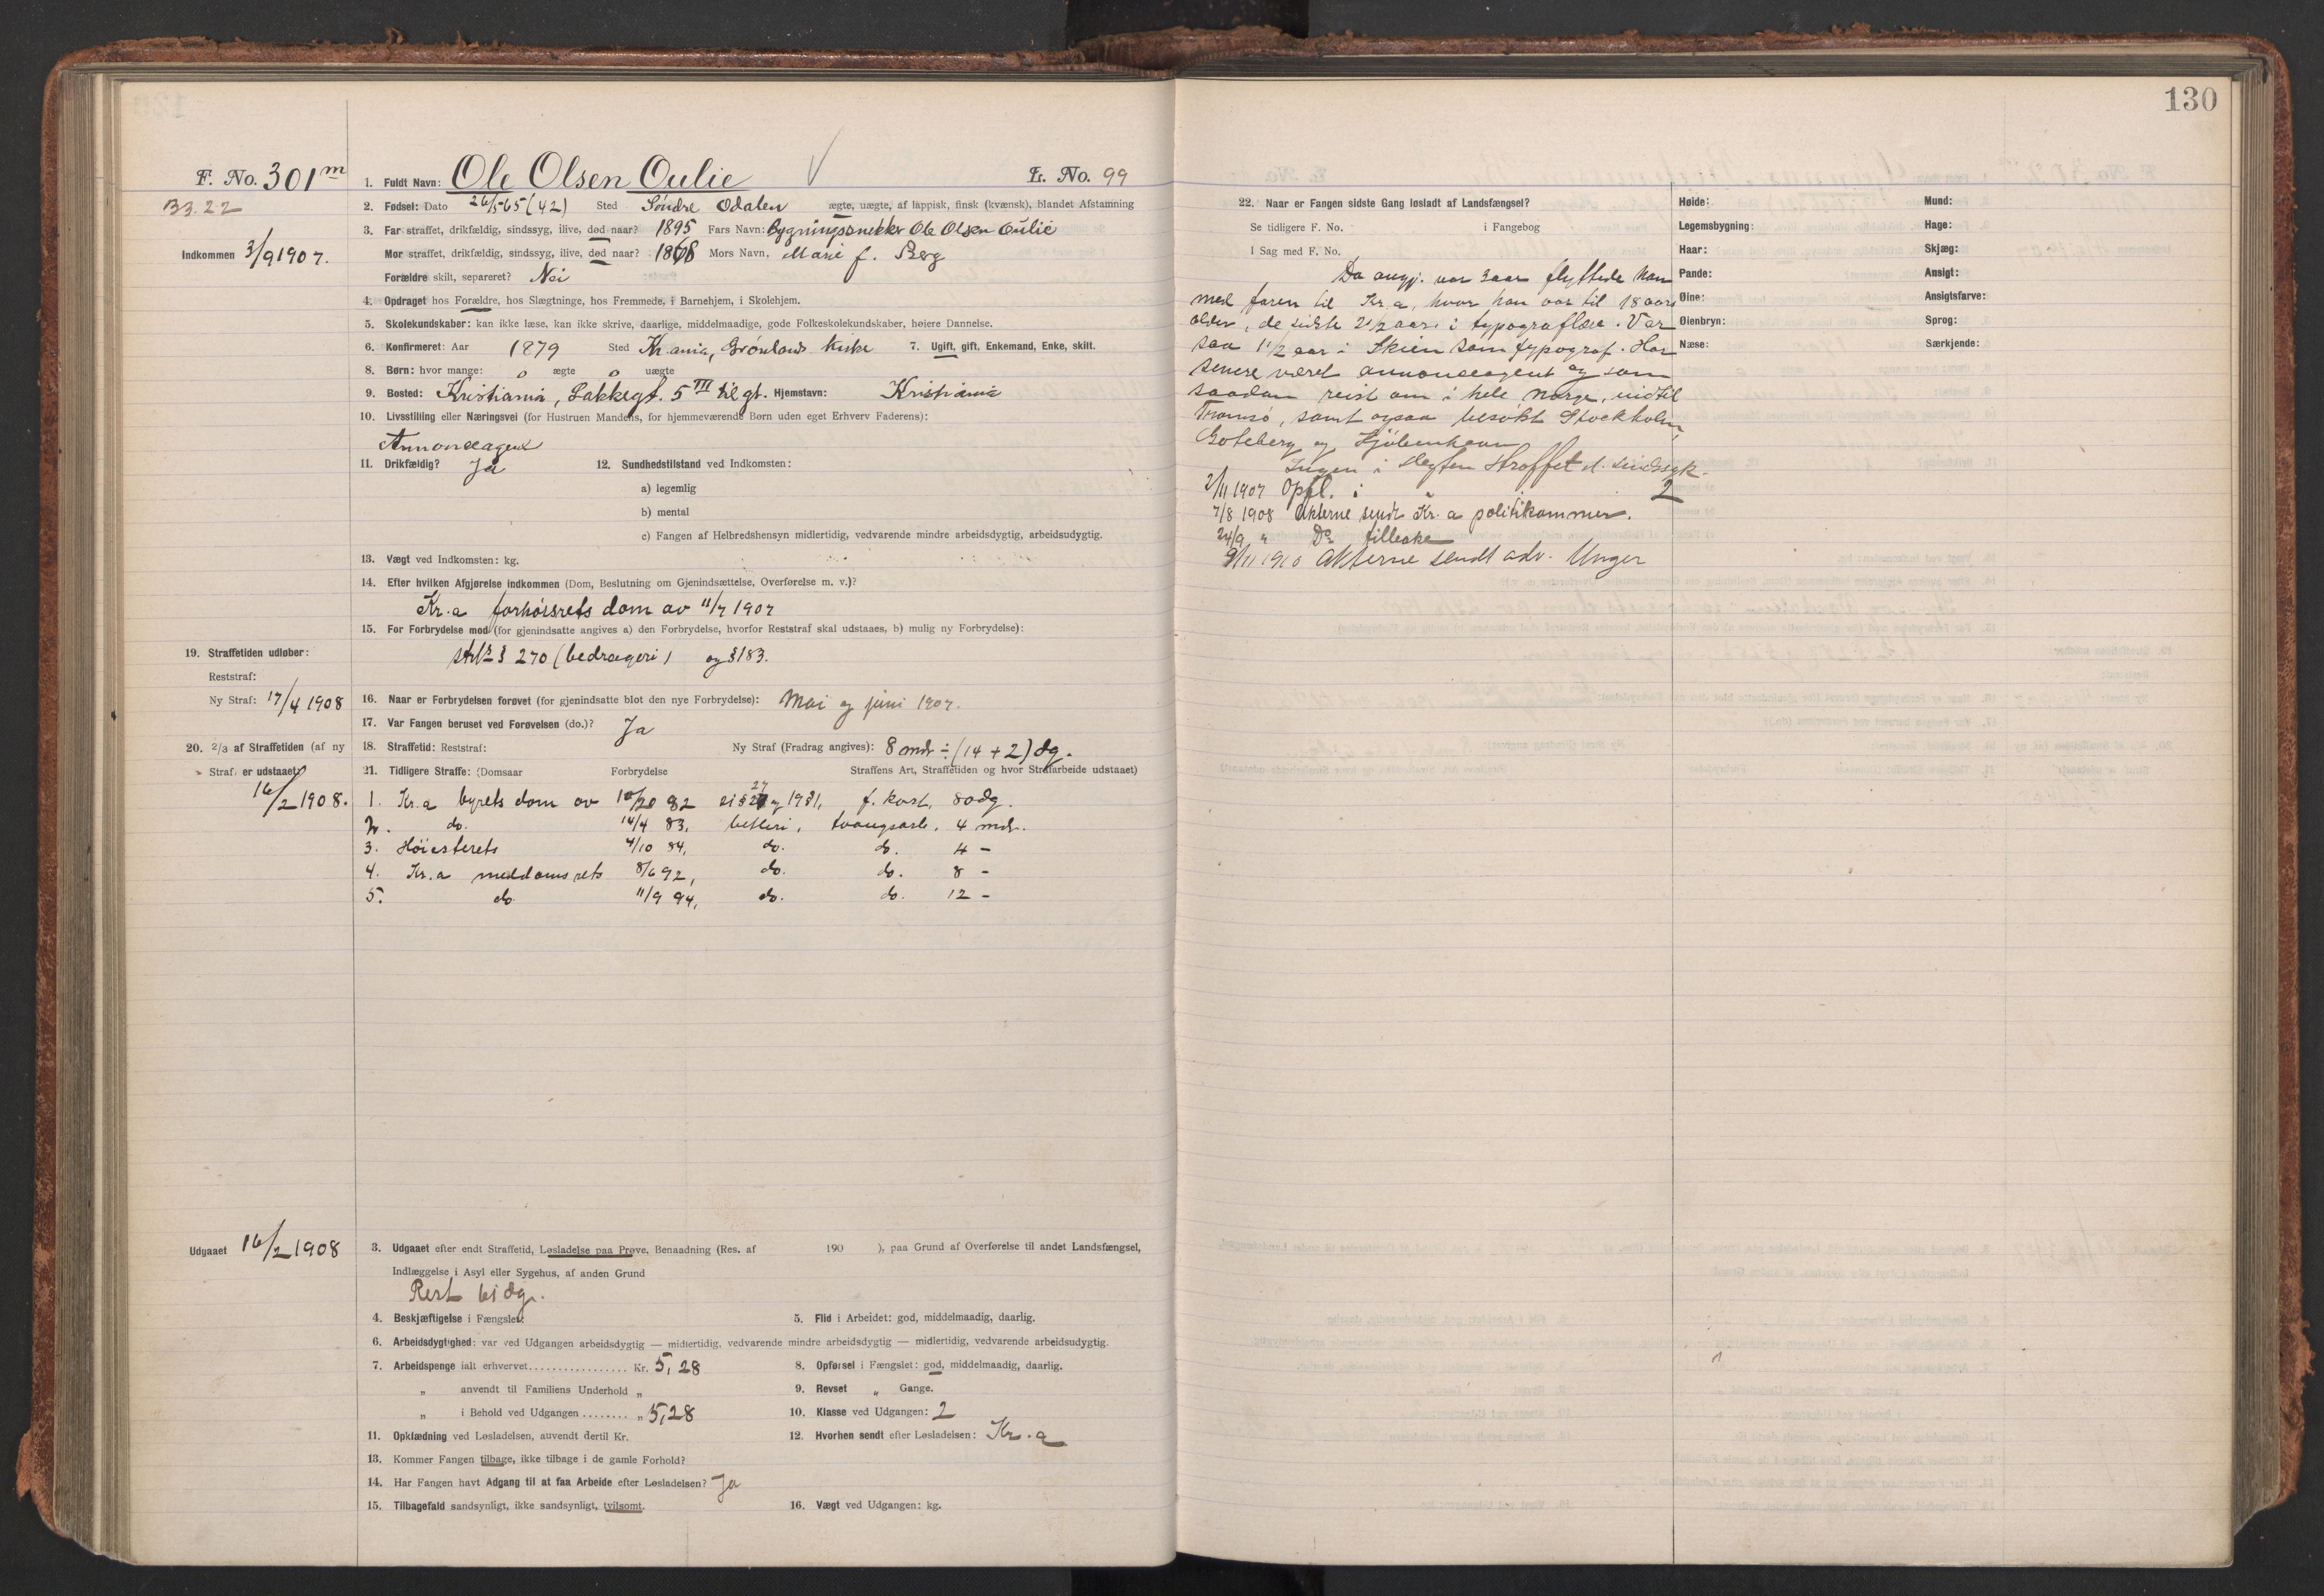 130
F. No. 301 m
1. Fuldt Navn: Ole Olsen Oulie V
L. No. 99
B3.22
2. Fødsel: Dato 26/5 65 (42) Sted Søndre Odalen ægte, uægte, af lappisk, finsk (kvænsk), blandet Afstamning
3. Far straffet, drikfældig, sindssyg, ilive, død naar? 1895 Fars Navn: Bygningssnekker Ole Olsen Oulie
Indkommen 3/9 1907.
Mor straffet, drikfældig, sindssyg, ilive, død naar? 1868 Mors Navn, Marie f. Berg
Forældre skilt, separeret? Nei
4. Opdraget hos Forældre, hos Slægtninge, hos Fremmede, i Barnehjem, i Skolehjem.
5. Skolekundskaber: kan ikke læse, kan ikke skrive, daarlige, middelmaadige, gode Folkeskolekundskaber, høiere Dannelse.
6. Konfirmeret: Aar 1879 Sted Kr.ania, Grønlands kirke 7. Ugift, gift, Enkemand, Enke, skilt.
8. Børn: hvor mange: 0 ægte 0 uægte
9. Bosted: Kristiania, Lakkegt. 5 III til gt. Hjemstavn: Kristiania
10. Livsstilling eller Næringsvei (for Hustruen Mandens, for hjemmeværende Børn uden eget Erhverv Faderens):
Annonceagent
11. Drikfældig? Ja 12. Sundhedstilstand ved Indkomsten:
a) legemlig
b) mental
c) Fangen af Helbredshensyn midlertidig, vedvarende mindre arbeidsdygtig, arbeidsudygtig.
13. Vægt ved Indkomsten: kg.
14. Efter hvilken Afgjørelse indkommen (Dom, Beslutning om Gjenindsættelse, Overførelse m. v.)?
Kr.a forhørsrets dom av 11/7 1907
15. For Forbrydelse mod (for gjenindsatte angives a) den Forbrydelse, hvorfor Reststraf skal udstaaes, b) mulig ny Forbrydelse):
strl's § 270 (bedrageri) og § 183.
19. Straffetiden udløber:
Reststraf:
Ny Straf: 17/4 1908
16. Naar er Forbrydelsen forøvet (for gjenindsatte blot den nye Forbrydelse): Mai og juni 1907.
17. Var Fangen beruset ved Forøvelsen (do.)? Ja
20. 2/3 af Straffetiden (af ny
Straf) er udstaaet:
16/2 1908.
18. Straffetid: Reststraf: Ny Straf (Fradrag angives): 8 mdr ÷ (14 + 2) dg.
21. Tidligere Straffe: (Domsaar Forbrydelse Straffens Art, Straffetiden og hvor Strafarbeide udstaaet)
1. Kr.a byrets dom av 82 f. kost, 80 dg.
2. do. 14/4 83, betleri, tvangsarb. 4 mdr.
3. Høiesterets 4/10 84, do. do. 4 -
4. Kr.a meddomsrets 8/6 92, do. do. 8 -
5. do 11/9 94, do. do. 12 -
Udgaaet 16/2 1908
3. Udgaaet efter endt Straffetid, Løsladelse paa Prøve, Benaadning (Res. af 190 ), paa Grund af Overførelse til andet Landsfængsel,
Indlæggelse i Asyl eller Sygehus, af anden Grund
Rest 61 dg.
4. Beskjæftigelse i Fængslet: 5. Flid i Arbeidet: god, middelmaadig, daarlig.
6. Arbeidsdygtighed: var ved Udgangen arbeidsdygtig — midlertidig, vedvarende mindre arbeidsdygtig — midlertidig, vedvarende arbeidsudygtig.
7. Arbeidspenge ialt erhvervet................. Kr. 5,28 8. Opførsel i Fængslet: god, middelmaadig, daarlig.
„ anvendt til Familiens Underhold „ 9. Revset „ Gange.
„ i Behold ved Udgangen ........ „ 5,28 10. Klasse ved Udgangen: 2
11. Opklædning ved Løsladelsen, anvendt dertil Kr. 12. Hvorhen sendt efter Løsladelsen: Kr.a
13. Kommer Fangen tilbage, ikke tilbage i de gamle Forhold?
14. Har Fangen havt Adgang til at faa Arbeide efter Løsladelsen? Ja
15. Tilbagefald sandsynligt, ikke sandsynligt, tvilsomt. 16. Vægt ved Udgangen: kg.
22. Naar er Fangen sidste Gang løsladt af Landsfængsel?
Se tidligere F. No. i Fangebog
I Sag med F. No.
Høide: Mund:
Legemsbygning: Hage:
Haar: Skjæg:
Pande: Ansigt:
Øine: Ansigtsfarve:
Øienbryn: Sprog:
Næse: Særkjende:
Da angj. var 3 aar flyttede han
med faren til Kr.a, hvor han var til 18 aars
alder, de sidste 2 1/2 aar i typograflære. Var
saa 1 1/2 aar i Skien som typograf. Har
senere været annonceagent og som
saadan reist om i hele Norge, indtil
Tromsø, samt ogsaa besøkt Stockholm,
Gøteberg og Kjøbenhavn
Ingen i slegten straffet el. sindssyk.
2/11 1907 Opfl. i 2
7/8 1908 Akterne sendt Kr.a politikammer.
24/9 " Do tilbake
9/11 1910 Akterne sendt adv. Unger